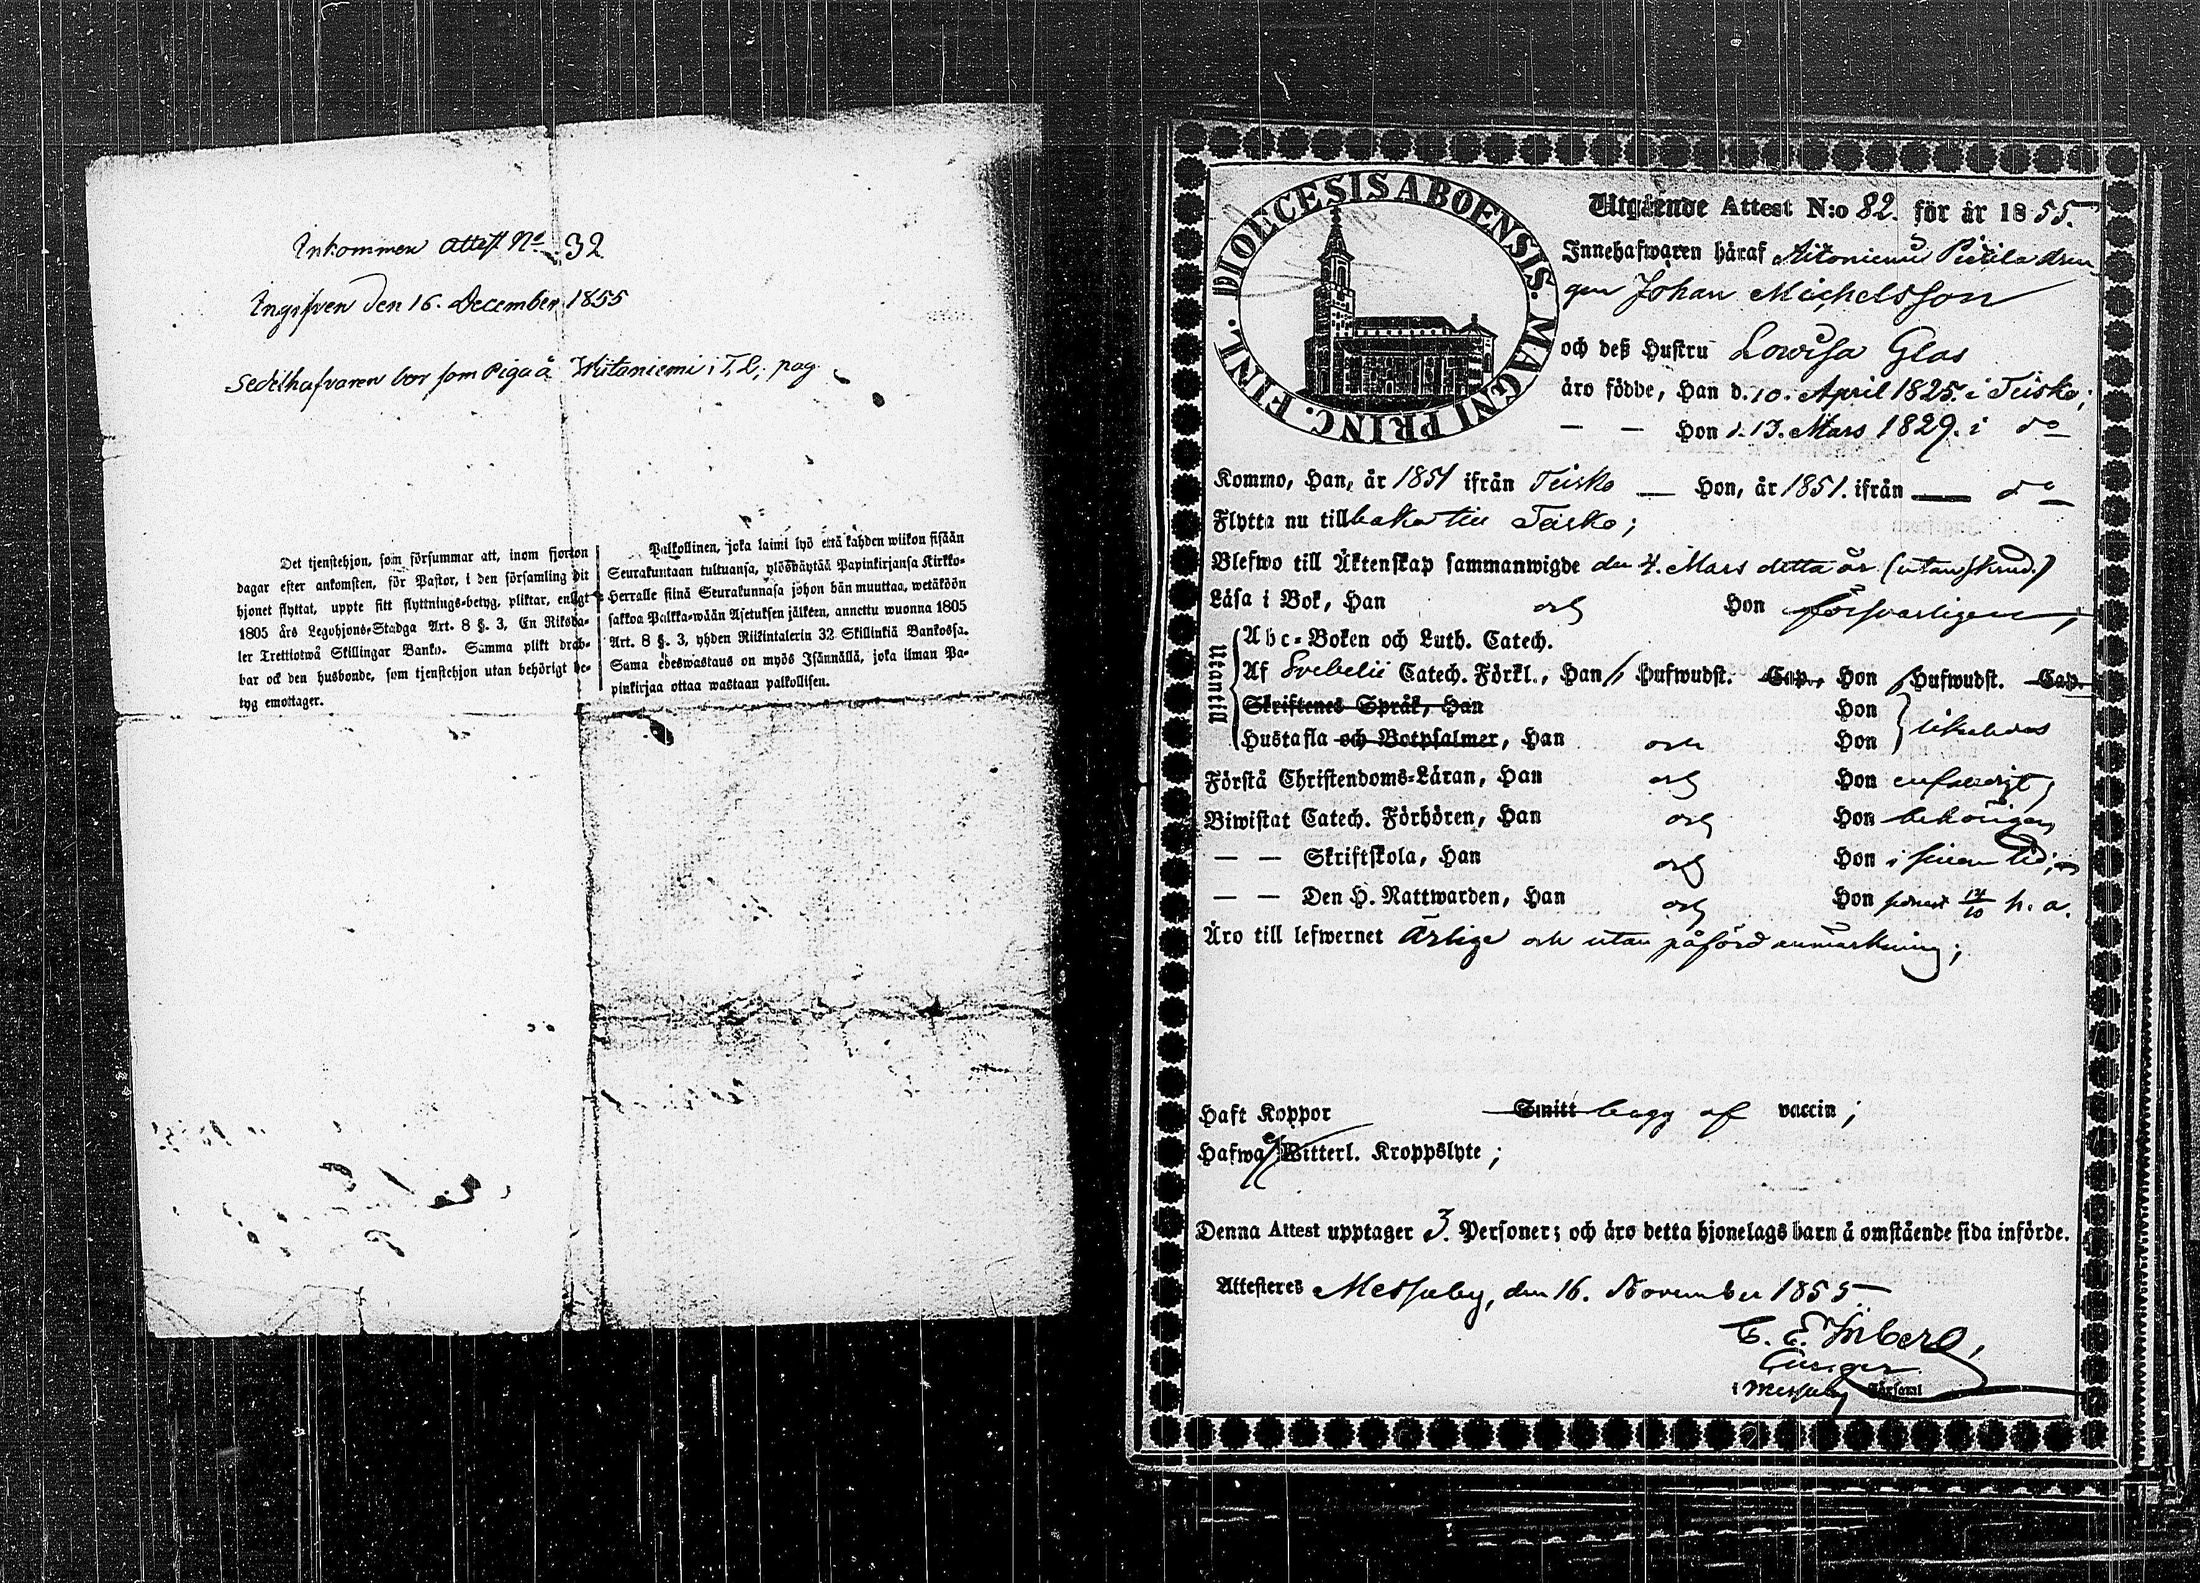 Inkommen attest No 32
Ingifven den 16. December 1855
Sedelhafvaren bor som Piga å Wiitaniemi i T. L. pag
Det tjenstehjon, som försummar att, inom fjorton
dagar efter ankomsten, för Pastor, i den församling dit
hjonet flyttat, uppte sitt flyttnings-betyg, pliktar, enligt
1805 års Legohjons-Stadga Art. 8 §. 3, En Riksda-
ler Trettiotwå Skillingar Banko. Samma plikt drab-
bar ock den husbonde, som tjenstehjon utan behörigt be-
tyg emottager.
Palkollinen, joka laimi lyö että kahden wiikon sisään
Seurakuntaan tultuansa, ylösnäytää Papinkirjansa Kirkko-
Herralle siinä Seurakunnasa johon hän muuttaa, wetäköön
sakkoa Palkka-wään Asetuksen jälkeen, annettu wuonna 1805
Art. 8 §. 3, yhden Riikintalerin 32 Skillinkiä Bankossa.
Sama edeswastaus on myös Isännällä, joka ilman Pa-
pinkirjaa ottaa wastaan palkollisen.
DIOECESIS ABOENSIS. MAGNI PRINC. FINL.
Utgående Attest N:o 82. för år 1855.
Innehafwaren häraf Aitoniemi Pietilä dren
gen Johan Michelsson
och deß Hustru Lovisa Glas
äro födde, Han d. 10. April 1825. i Teisko;
— — Hon d. 13. Mars 1829. i do
Kommo, Han, år 1851 ifrån Teisko — Hon, år 1851. ifrån — do
Flytta nu tillbaka till Teisko;
Blefwo till Äktenskap sammanwigde den 4. Mars detta år (utan skrud.)
Läsa i Bok, Han och Hon försvarligen;
Utantill
Abc-Boken och Luth. Catech.
Af Svebelii Catech. Förkl., Han 1, Hufwudst. Cap., Hon 1 Hufwudst. Cap.
Skriftenes Språk, Han Hon
Hustafla och Botpsalmer, Han och Hon likaledes
Förstå Christendoms-Läran, Han och Hon enfaldigt;
Biwistat Catech. Förhören, Han och Hon behörigen
— — Skriftskola, Han och Hon i sinom tid;
— — Den H. Nattwarden, Han och Hon senast 14/10 h. a.
Äro till lefwernet ärlige och utan påförd anmärkning;
Haft Koppor Smitt begge af vaccin;
Hafwa ej Witterl. Kroppslyte;
Denna Attest upptager 3. Personer; och äro detta hjonelags barn å omstående sida införde.
Attesteres Messuby, den 16. November 1855
C. E.
i Messuby Församl